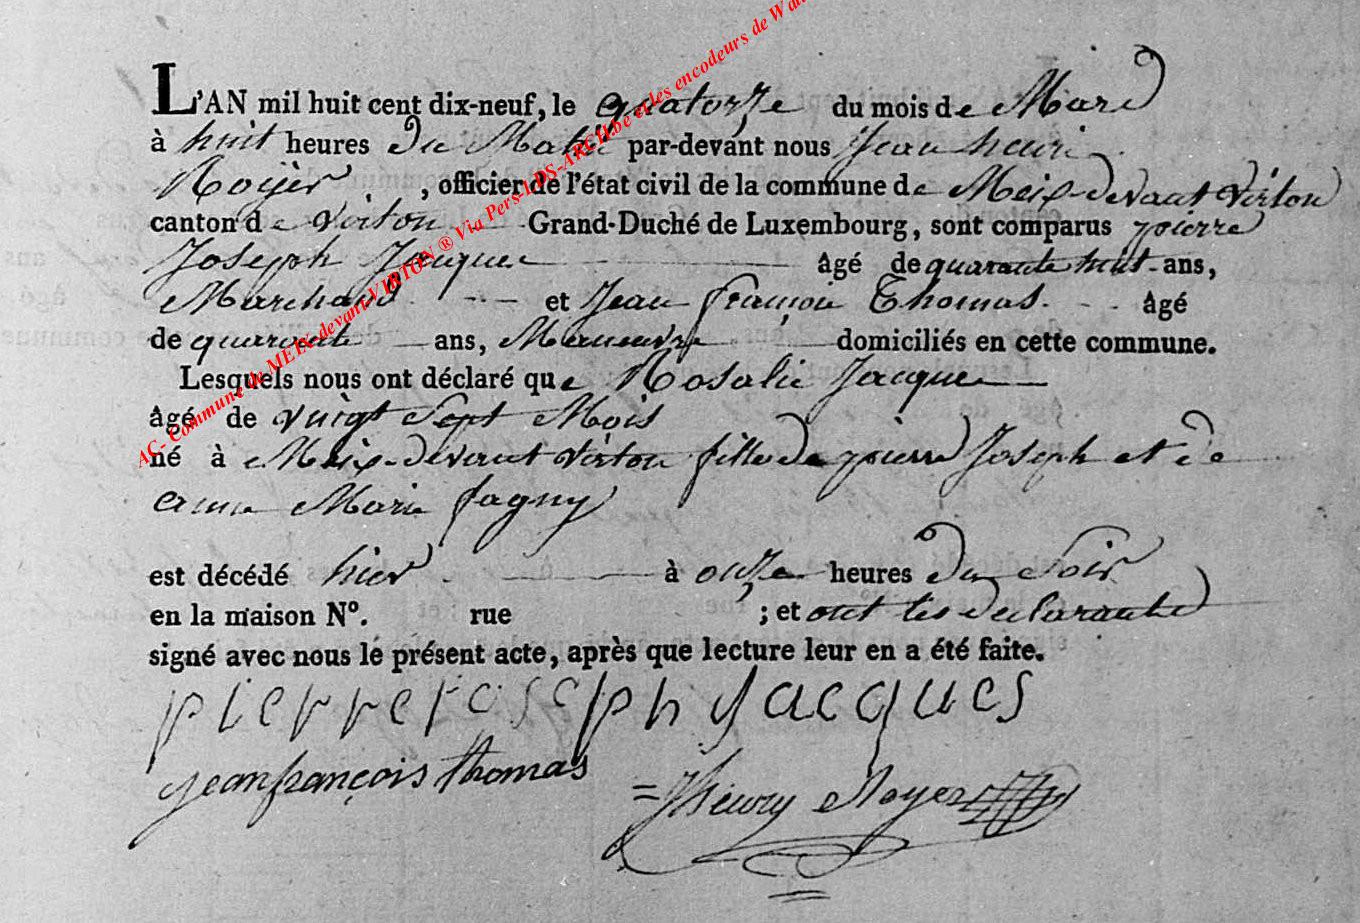 L'AN mil huit cent dix-neuf, le quatorze du mois de Mars
à huit heures du Matin par-devant nous Jean henri
Royer, officier de l'état civil de la commune de Meix-devant virton
canton de virton Grand-Duché de Luxembourg, sont comparus pierre
Joseph Jacques âgé de quarante huit ans,
Marchand et Jean françois Thomas âgé
de quarante ans, Maneuvre domiciliés en cette commune.
Lesquels nous ont déclaré que Rosalie Jacques
âgé de vingt Sept Mois
né à Meix-devant virton fille de pierre Joseph et de
anne Marie fagny
est décédé hier à onze heures du Soir
en la maison N°. rue ; et ont les declarants
signé avec nous le présent acte, après que lecture leur en a été faite.
pierre ioseph Jacques
jean françois thomas
= JHenry Royer
AC- Commune de MEIX-devant-VIRTON ® Via Pers LDS-ARCH.be et les encodeurs de Wa